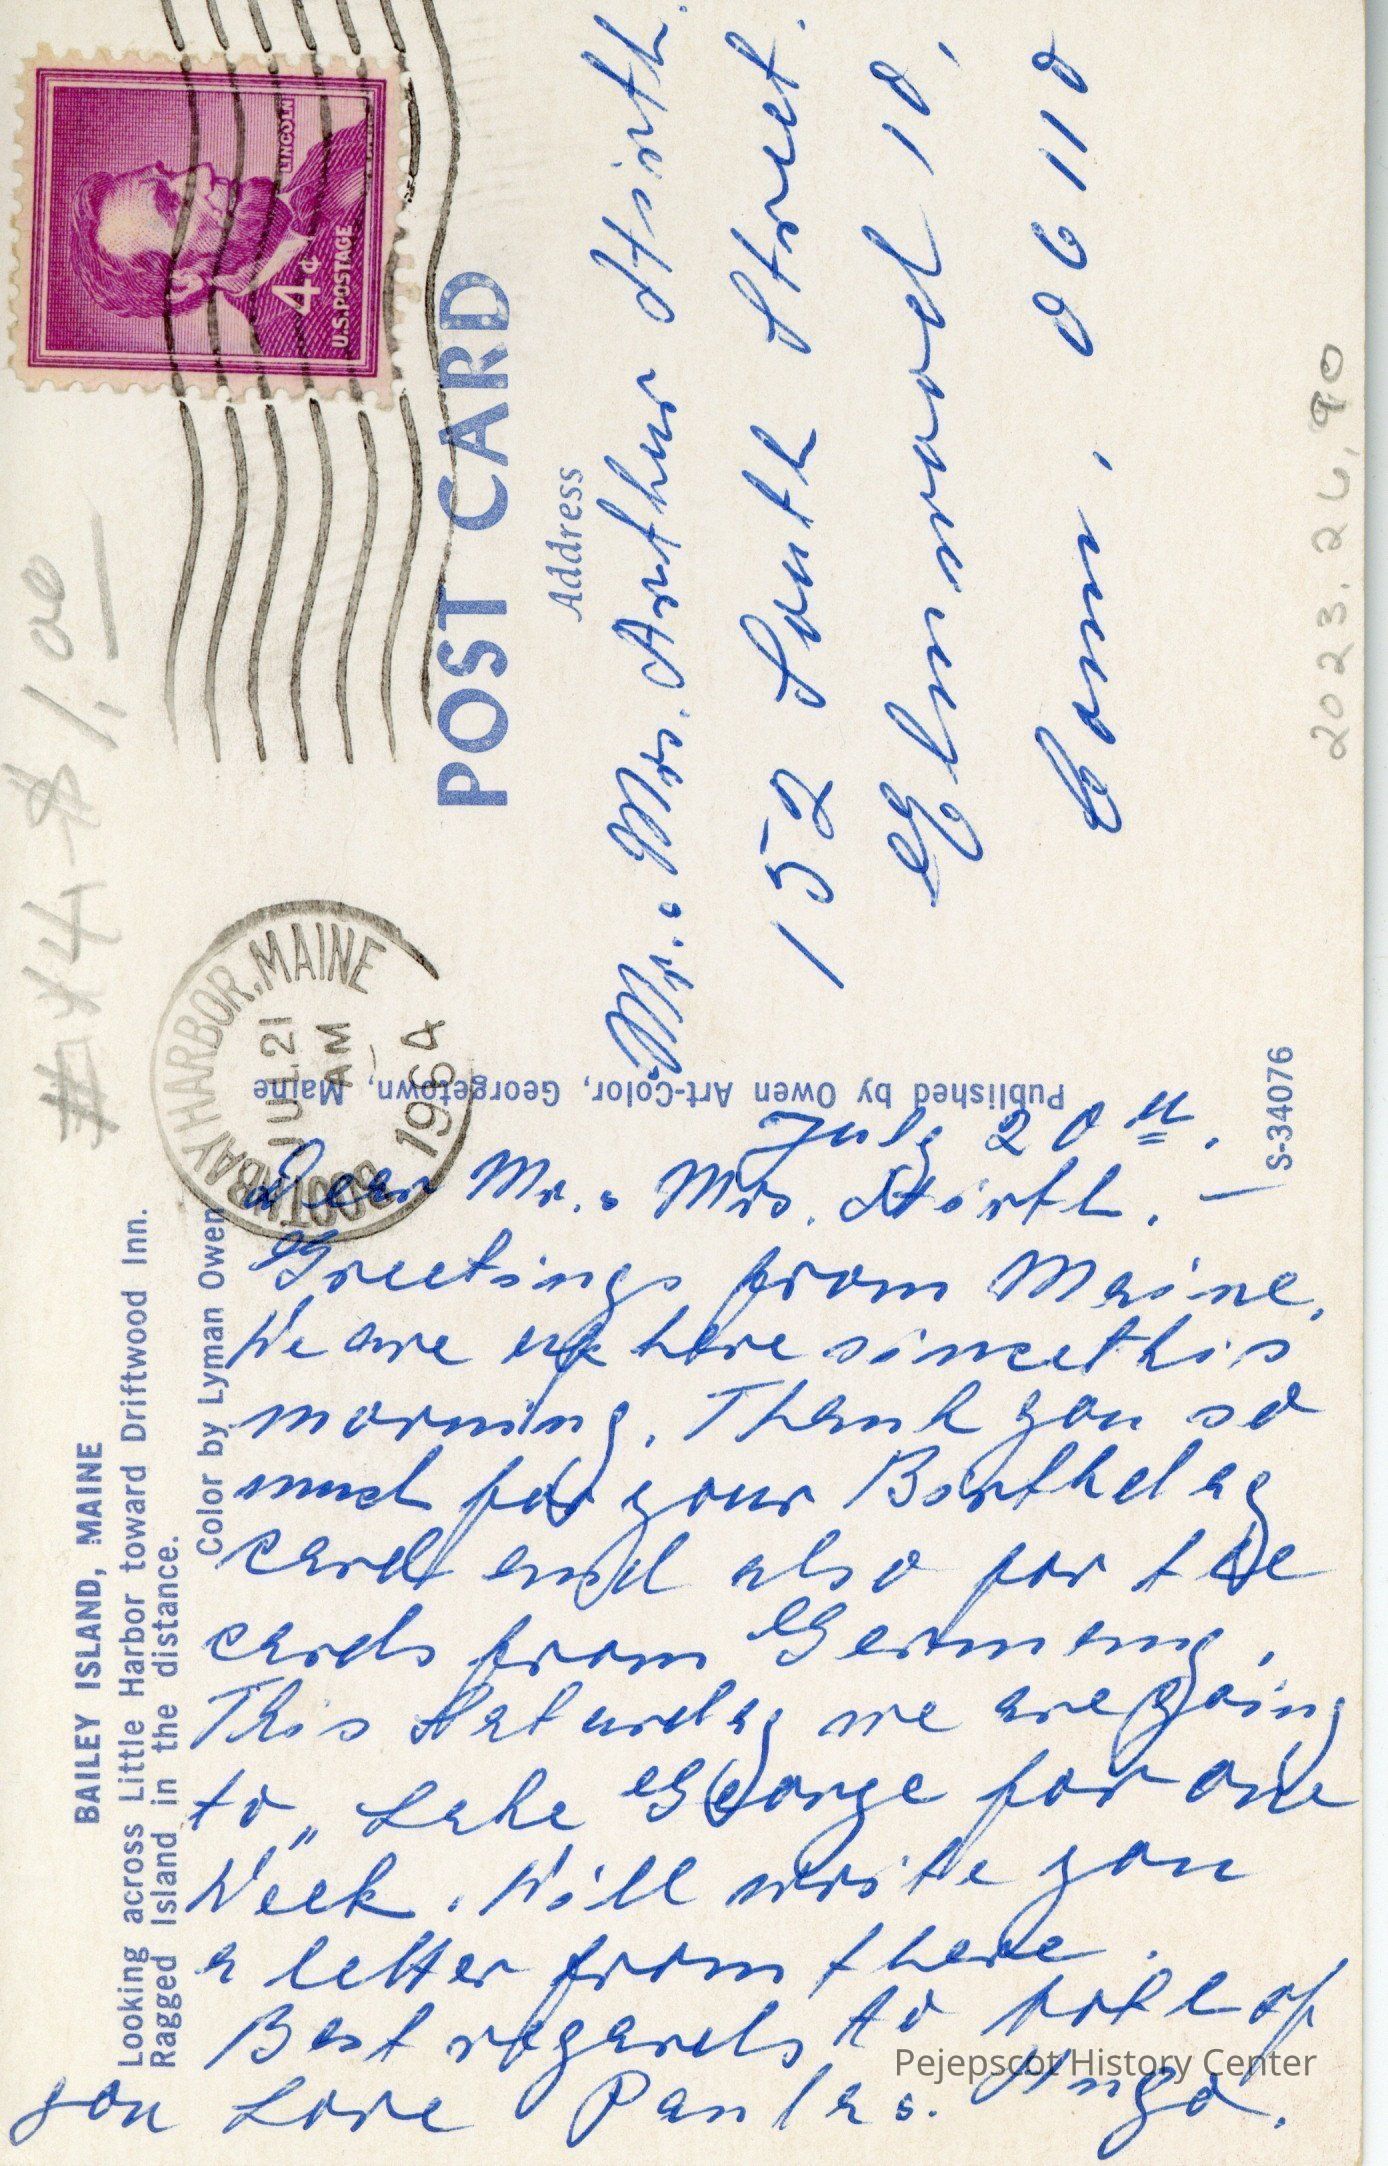 BAILEY ISLAND, MAINE
Looking across Little Harbor toward Driftwood Inn.
Ragged Island in the distance.
Color by Lyman Owen
July 20th.
Dear Mr. & Mrs. Hirth. —
Greetings from Maine.
We are up here since this
morning. Thank you so
much for your Birthday
card and also for the
cards from Germany.
This Saturday we are going
to „ Lake George for one
Week. Will write you
a letter from there.
Best regards to both of
you Love Paula & Hugo.
Published by Owen Art-Color, Georgetown, Maine
S-34076
#44 $1.00
BOOTHBAY HARBOR, MAINE
JUL 21
AM
1964
LINCOLN
4¢
U.S. POSTAGE
POST CARD
Address
Mr. & Mrs. Arthur Hirth.
152 South Street.
Elmwood 10,
Conn. 06110
2023.26.90
Pejepscot History Center